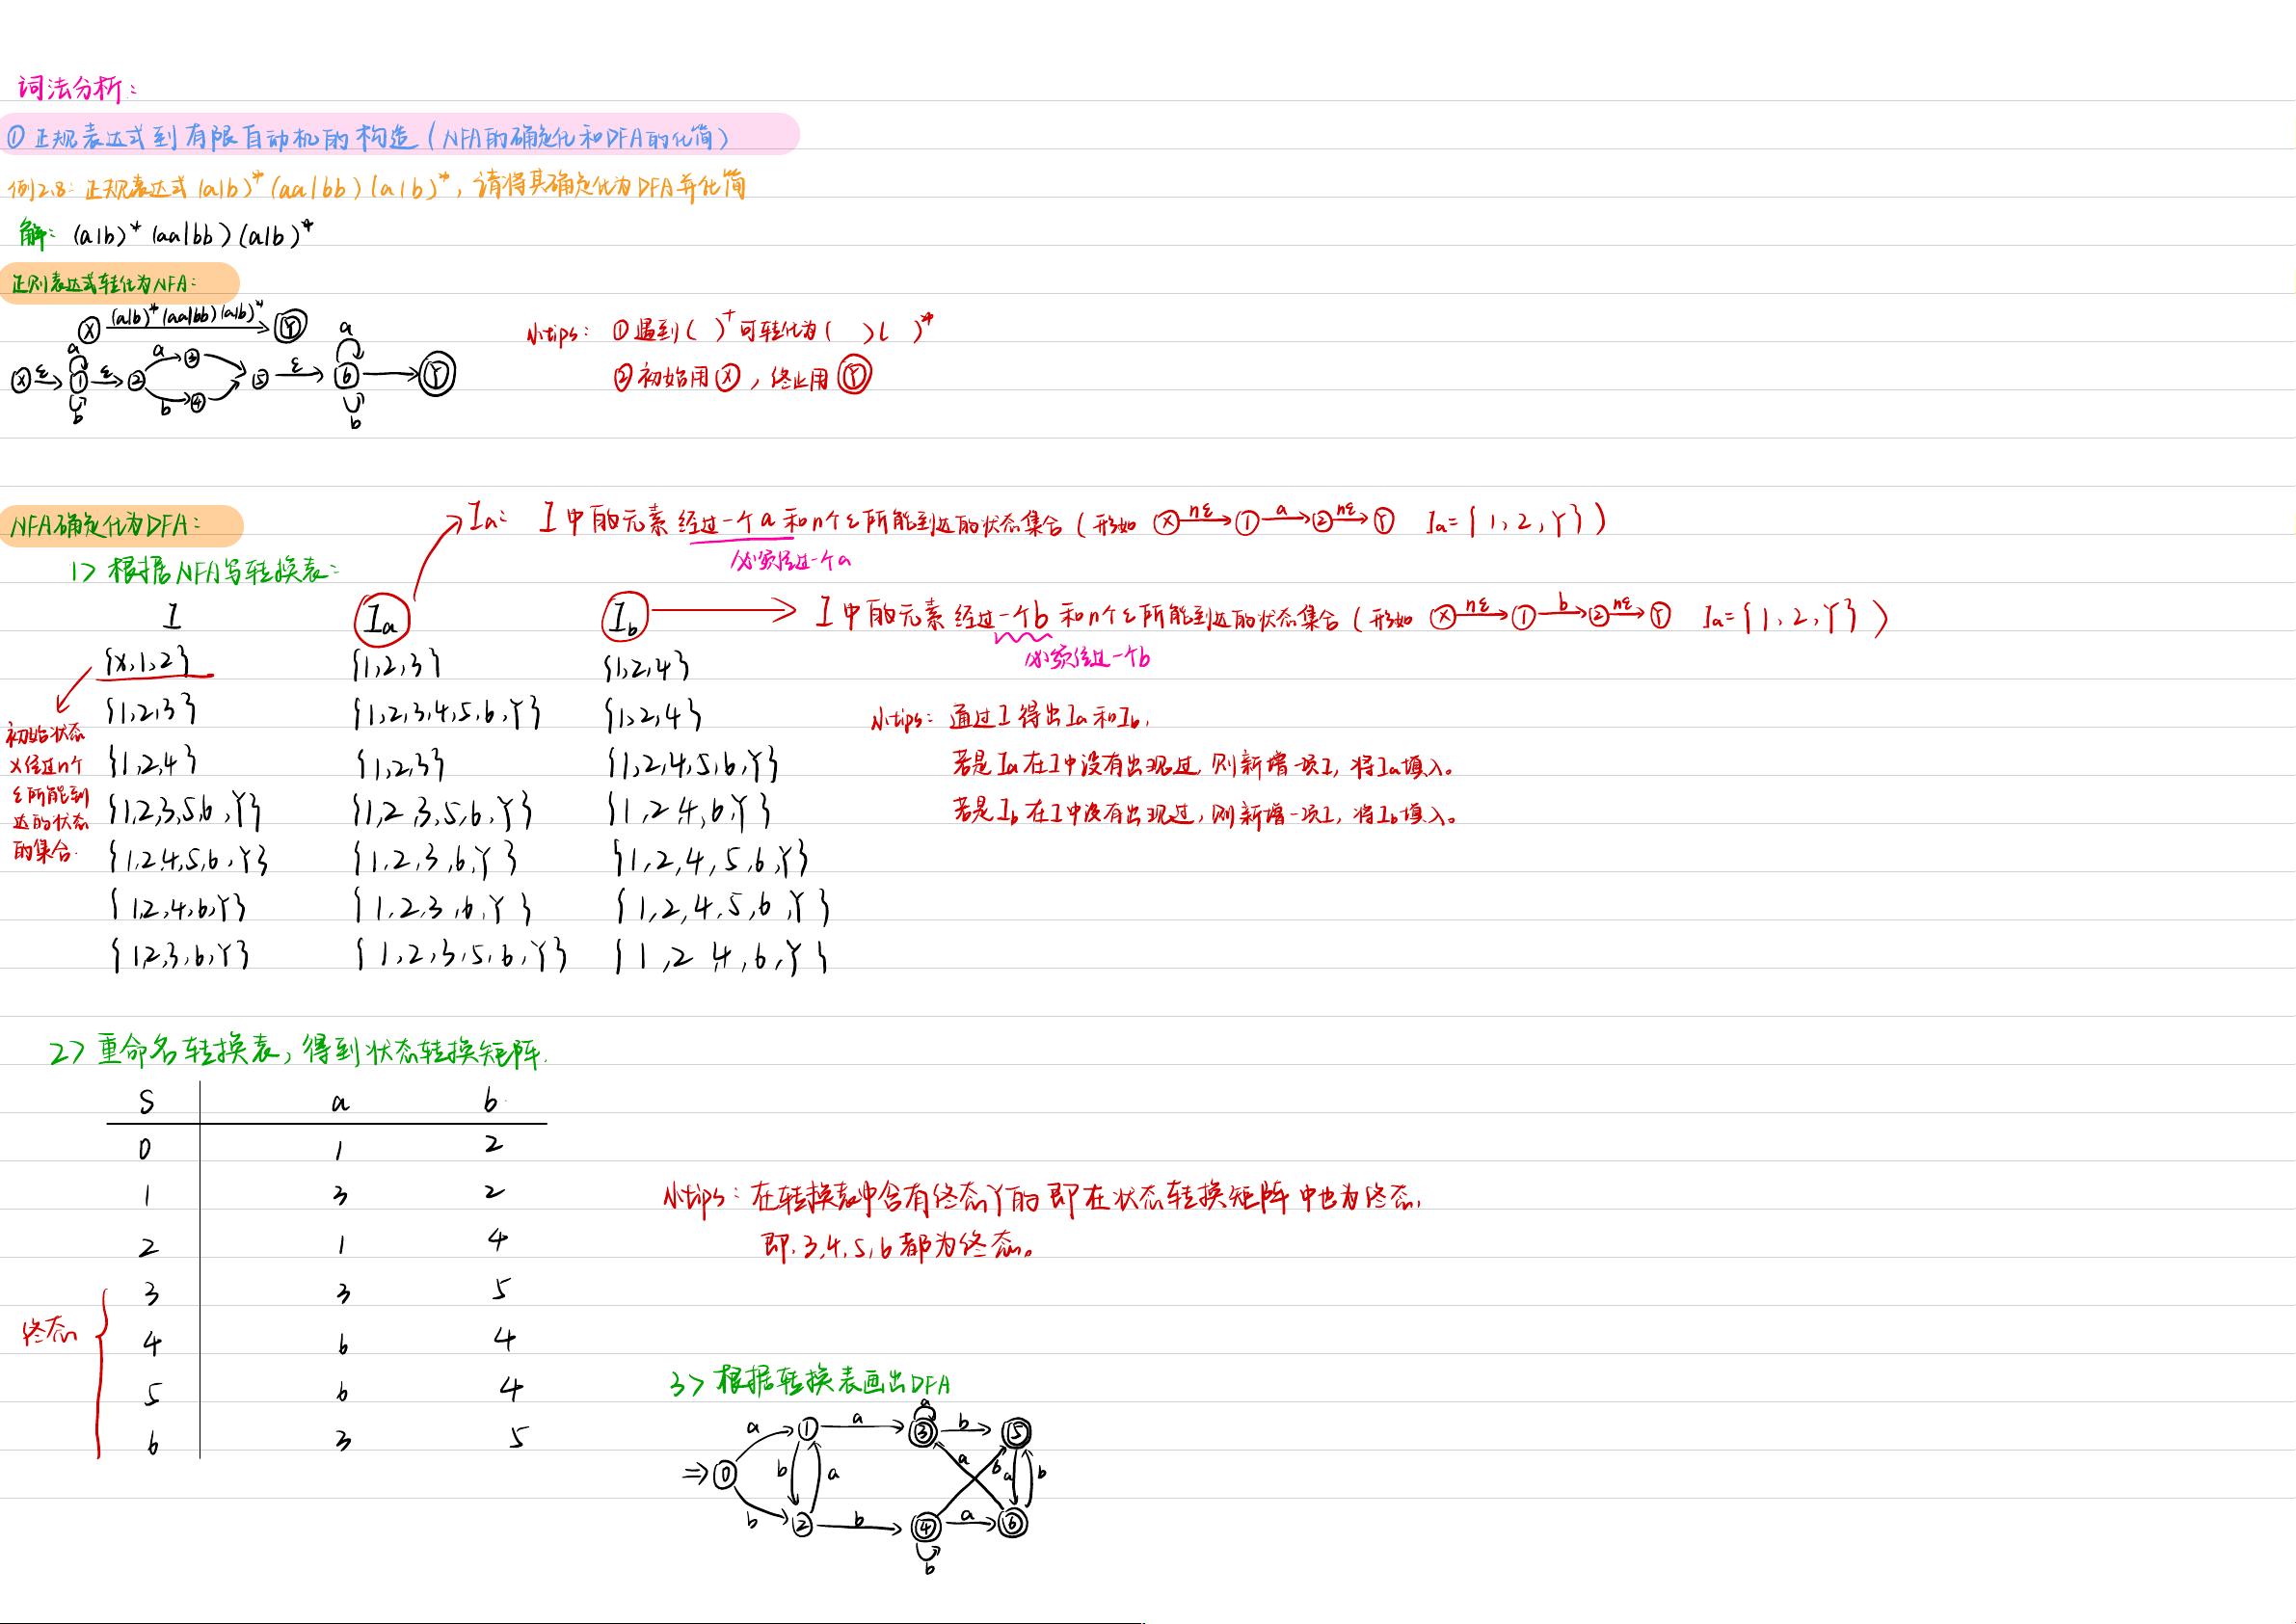 词法分析：
① 正规表达式到有限自动机的构造（NFA的确定化和DFA的化简）
例2.8：正规表达式 (a|b)* (aa|bb) (a|b)*，请将其确定化为DFA并化简
解： (a|b)* (aa|bb) (a|b)*
正则表达式转化为NFA：
X (a|b)* (aa|bb) (a|b)* Y
小tips： ① 遇到 ( )⁺ 可转化为 ( ) ( )*
② 初始用 X ，终止用 Y
X ε 1 ε 2 a 3 b 4 5 ε 6 Y
a b a b
NFA确定化为DFA：
Ia： I 中的元素 经过一个a 和n个ε所能到达的状态集合 ( 形如 X nε 1 a 2 nε Y Ia = { 1, 2, Y } )
必须经过一个a
1> 根据NFA写转换表：
I Ia Ib
I 中的元素 经过一个b 和n个ε所能到达的状态集合 ( 形如 X nε 1 b 2 nε Y Ia = { 1, 2, Y } )
必须经过一个b
{X,1,2} {1,2,3} {1,2,4}
{1,2,3} {1,2,3,4,5,6,Y} {1,2,4}
{1,2,4} {1,2,3} {1,2,4,5,6,Y}
{1,2,3,5,6,Y} {1,2,3,5,6,Y} {1,2,4,6,Y}
{1,2,4,5,6,Y} {1,2,3,6,Y} {1,2,4,5,6,Y}
{1,2,4,6,Y} {1,2,3,6,Y} {1,2,4,5,6,Y}
{1,2,3,6,Y} {1,2,3,5,6,Y} {1,2,4,6,Y}
初始状态
X经过n个
ε所能到
达的状态
的集合.
小tips： 通过I 得出Ia和Ib,
若是Ia在I中没有出现过, 则新增一项I, 将Ia填入。
若是Ib在I中没有出现过, 则新增一项I, 将Ib填入。
2> 重命名转换表，得到状态转换矩阵.
S a b
0 1 2
1 3 2
2 1 4
3 3 5
4 6 4
5 6 4
6 3 5
终态
小tips：在转换表中含有终态Y的 即在状态转换矩阵中也为终态,
即. 3,4,5,6都为终态。
3> 根据转换表画出DFA
a 1 a 3 a b 5
0 b a a b a b
b 2 b 4 a 6
b